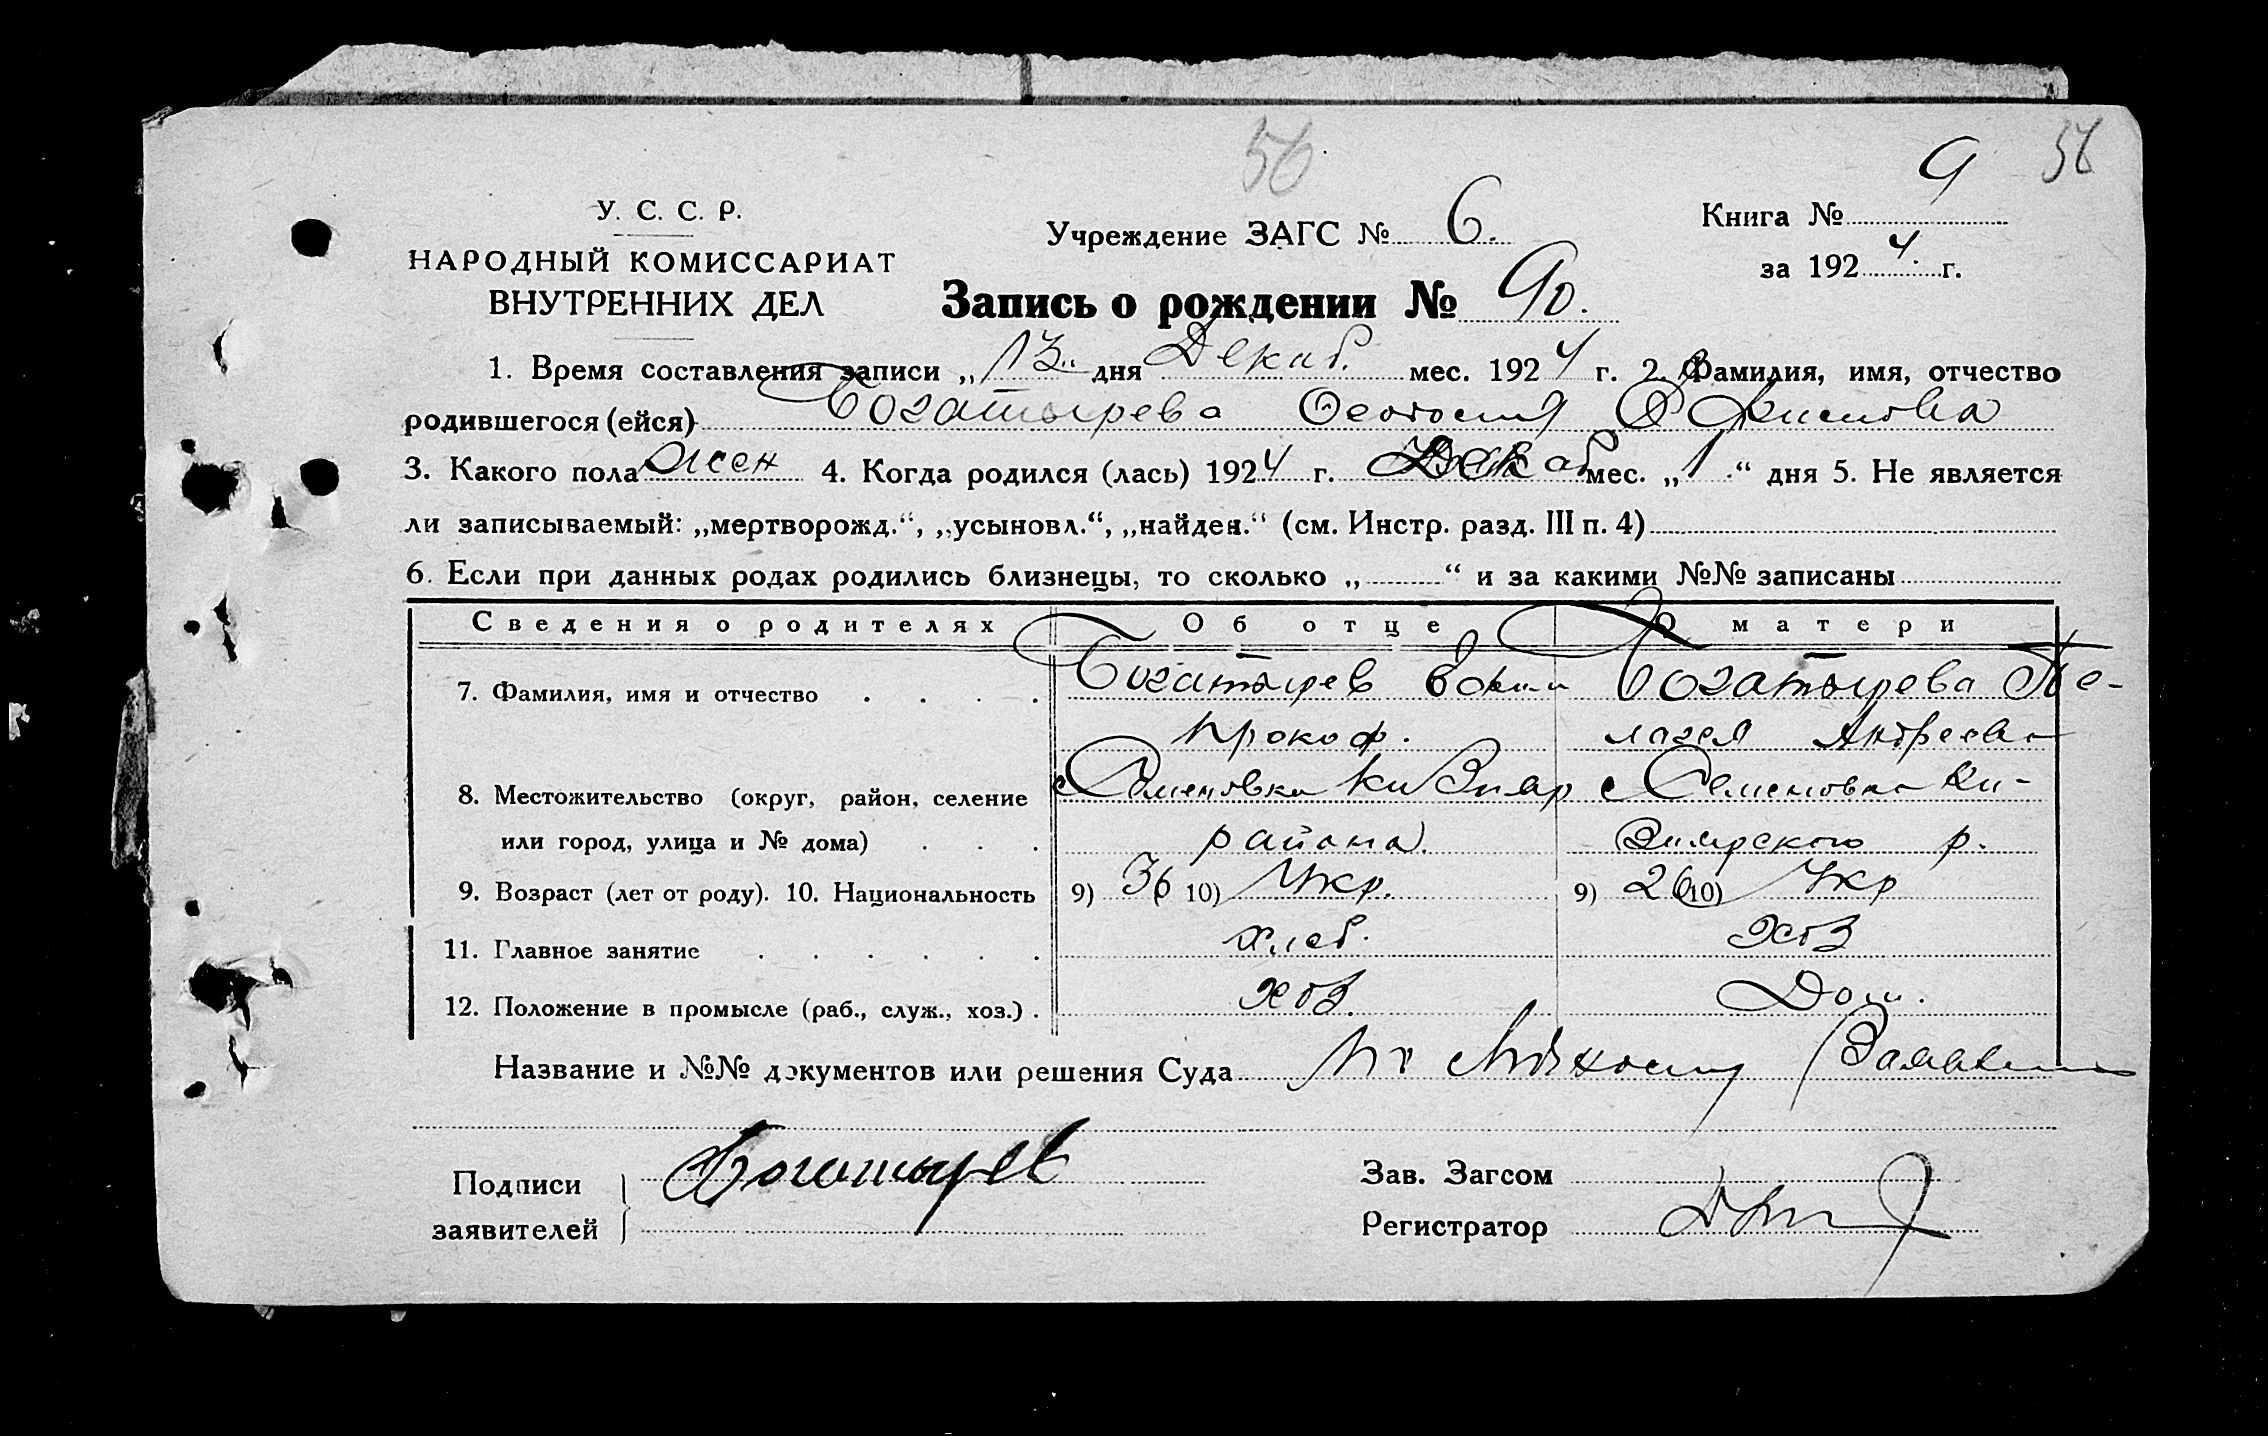 56 56
У. С. С. Р. Учреждение ЗАГС № 6. Книга № 9
НАРОДНЫЙ КОМИССАРИАТ за 1924 г.
ВНУТРЕННИХ ДЕЛ Запись о рождении № 90.
1. Время составления записи „13“ дня Декаб. мес. 1924 г. 2. Фамилия, имя, отчество
родившегося (ейся) Богатырева Феодосия
3. Какого пола жен 4. Когда родился (лась) 1924 г. Декаб мес. „1“ дня 5. Не является
ли записываемый: „мертворожд.“, „усыновл.“, „найден.“ (см. Инстр. разд. III п. 4)
6. Если при данных родах родились близнецы, то сколько „ “ и за какими №№ записаны
Сведения о родителях Об отце О матери
7. Фамилия, имя и отчество . . . . Богатырев Богатырева Пе-
Прокоф. лагея Андреева
8. Местожительство (округ, район, селение с Семеновка Ки Зияр с Семеновка Ки-
или город, улица и № дома) . . . района. Зиярского р.
9. Возраст (лет от роду). 10. Национальность 9) 36 10) Укр. 9) 26 10) Укр
11. Главное занятие . . . . . . Хлеб. Хоз
12. Положение в промысле (раб., служ., хоз.) . Хоз. Дом.
Название и №№ документов или решения Суда
Подписи Богатырев Зав. Загсом
заявителей Регистратор